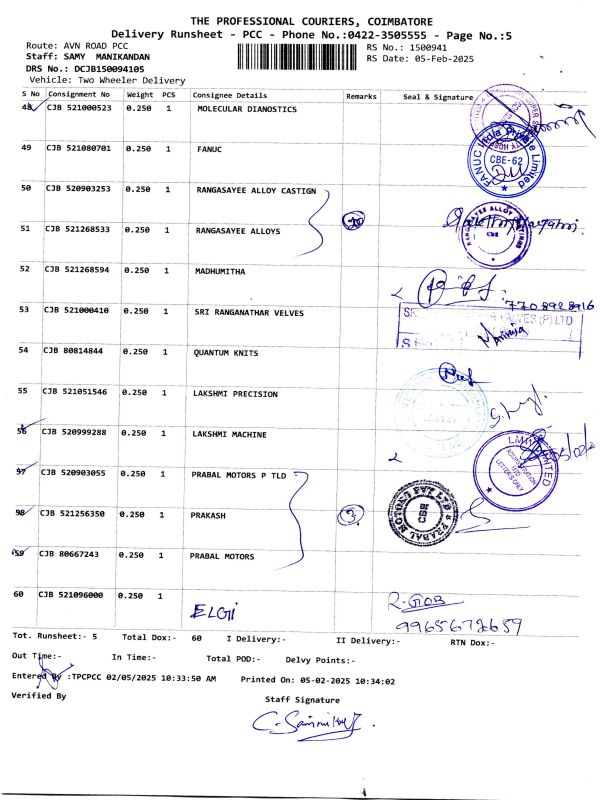 THE PROFESSIONAL COURIERS, COIMBATORE
Delivery Runsheet - PCC - Phone No.:0422-3505555 - Page No.:5
Route: AVN ROAD PCC
RS No.: 1500941
Staff: SAMY MANIKANDAN
RS Date: 05-Feb-2025
DRS No.: DCJB150094105
Vehicle: Two Wheeler Delivery
S No Consignment No Weight PCS Consignee Details Remarks Seal & Signature
48 CJB 521000523 0.250 1 MOLECULAR DIANOSTICS
49 CJB 521080701 0.250 1 FANUC
FANUC India Private Limited
CBE-62
50 CJB 520903253 0.250 1 RANGASAYEE ALLOY CASTIGN
51 CJB 521268533 0.250 1 RANGASAYEE ALLOYS
RANGASAYEE ALLOY CASTINGS
CBE
52 CJB 521268594 0.250 1 MADHUMITHA
7708928916
53 CJB 521000410 0.250 1 SRI RANGANATHAR VELVES
VALVES (P) LTD
54 CJB 80814844 0.250 1 QUANTUM KNITS
55 CJB 521051546 0.250 1 LAKSHMI PRECISION
56 CJB 520999288 0.250 1 LAKSHMI MACHINE
LETTERS ONLY
57 CJB 520903055 0.250 1 PRABAL MOTORS P TLD
58 CJB 521256350 0.250 1 PRAKASH
3
PRABAL MOTORS PVT LTD
CBE
59 CJB 80667243 0.250 1 PRABAL MOTORS
60 CJB 521096000 0.250 1
ELGi
R. GOB
9965672659
Tot. Runsheet:- 5 Total Dox:- 60 I Delivery:- II Delivery:- RTN Dox:-
Out Time:- In Time:- Total POD:- Delvy Points:-
Entered By :TPCPCC 02/05/2025 10:33:50 AM Printed On: 05-02-2025 10:34:02
Verified By
Staff Signature